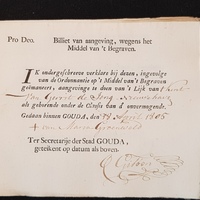 Pro Deo. Billet van aangeving, wegens het
Middel van 't Begraven.
IK ondergeschreve verklare bij dezen, ingevolge
van de Ordonnantie op 't Middel van 't Begraven
geëmaneert, aangeving te doen van 't Lijk van 't kint
van Gerrit de Jong
als gehorende onder de Classis van d' onvermogende.
Gedaan binnen GOUDA, den April 1805
Ter Secretarije der Stad GOUDA,
geteikent op datum als boven.